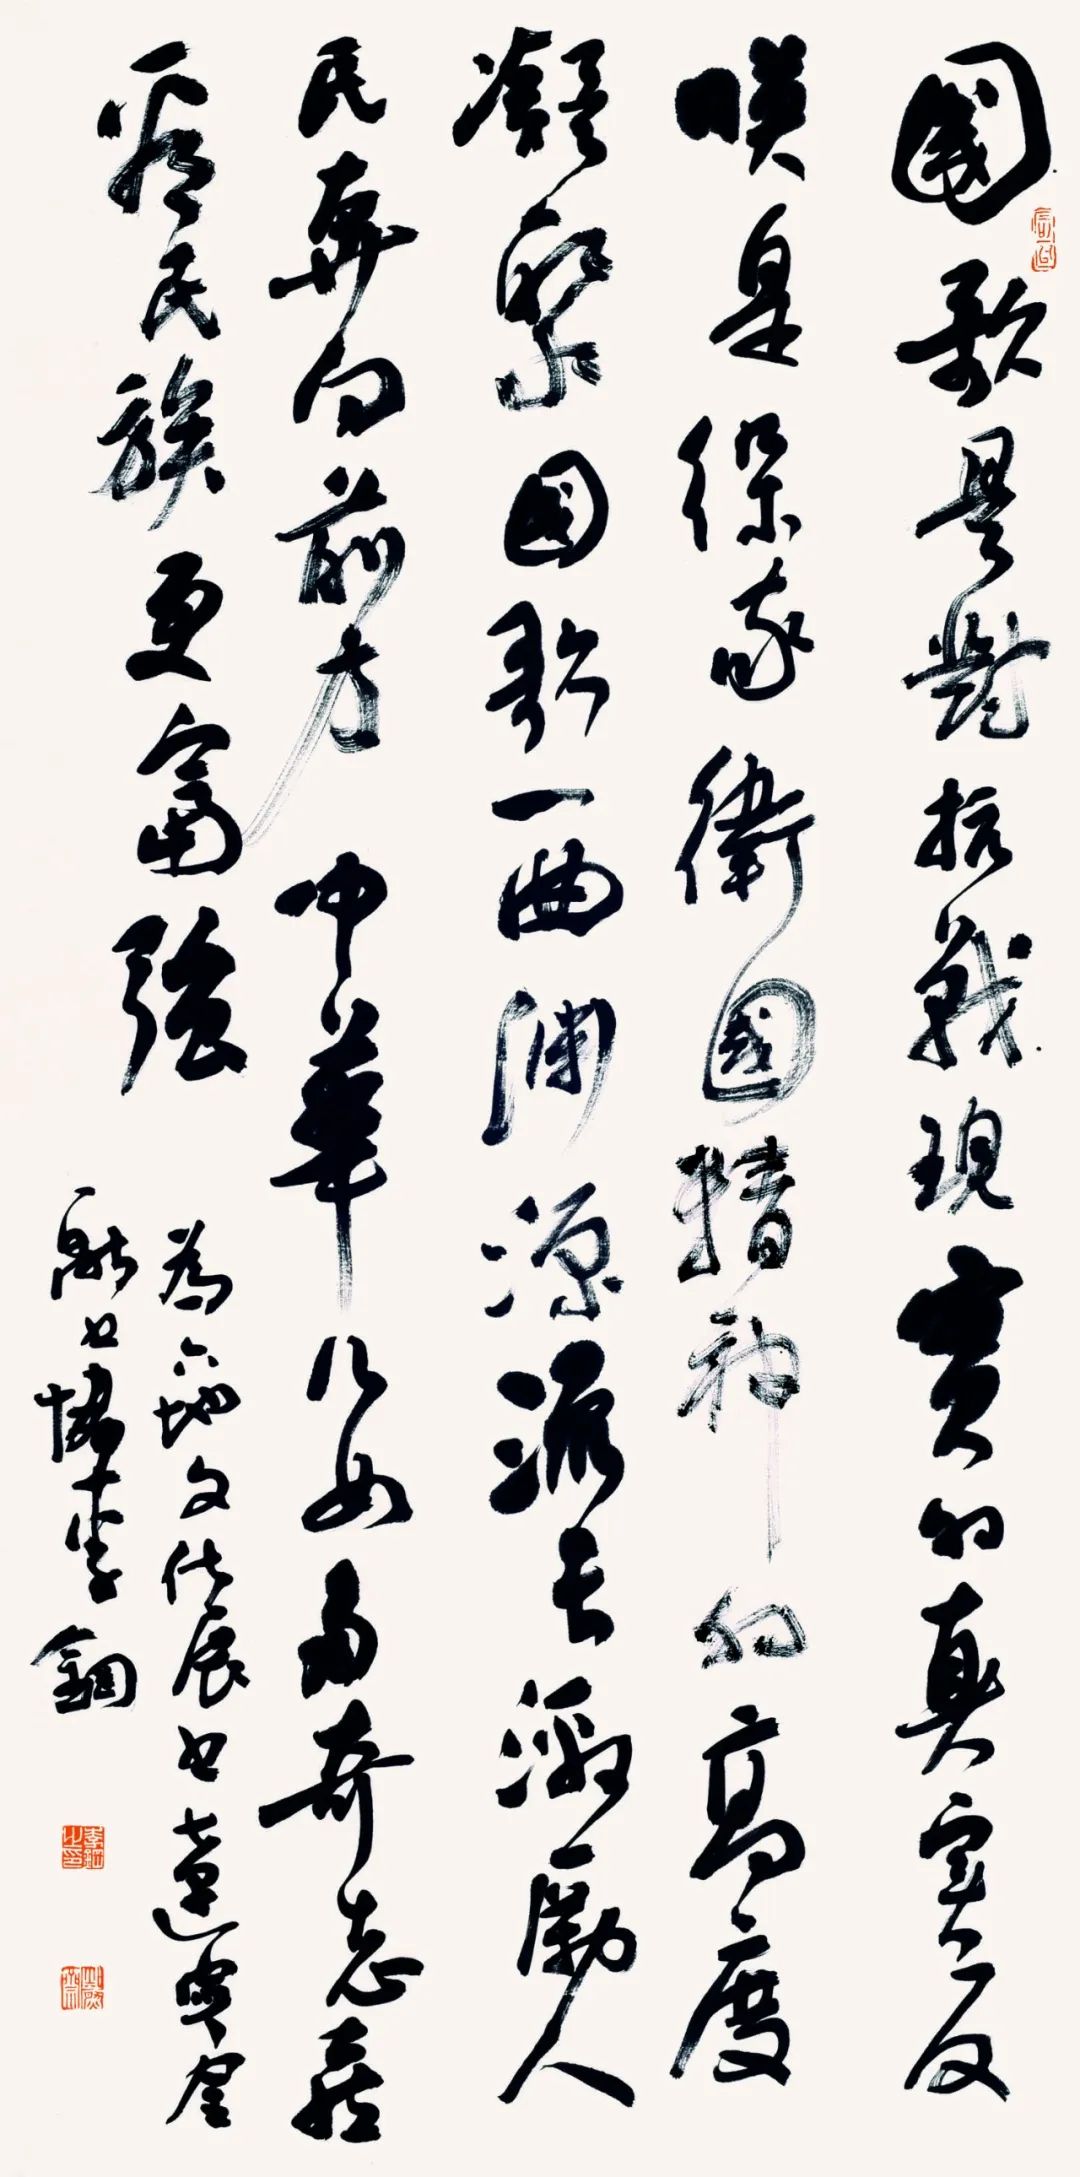 國歌是對抗戰現實的真實反
映是保家衛國精神的高度
凝聚國歌一曲淵源流長激勵人
民奔向前方中華兒女多奇志喜
看民族更富強
為六地文化展書遼寧省
書協李鋼